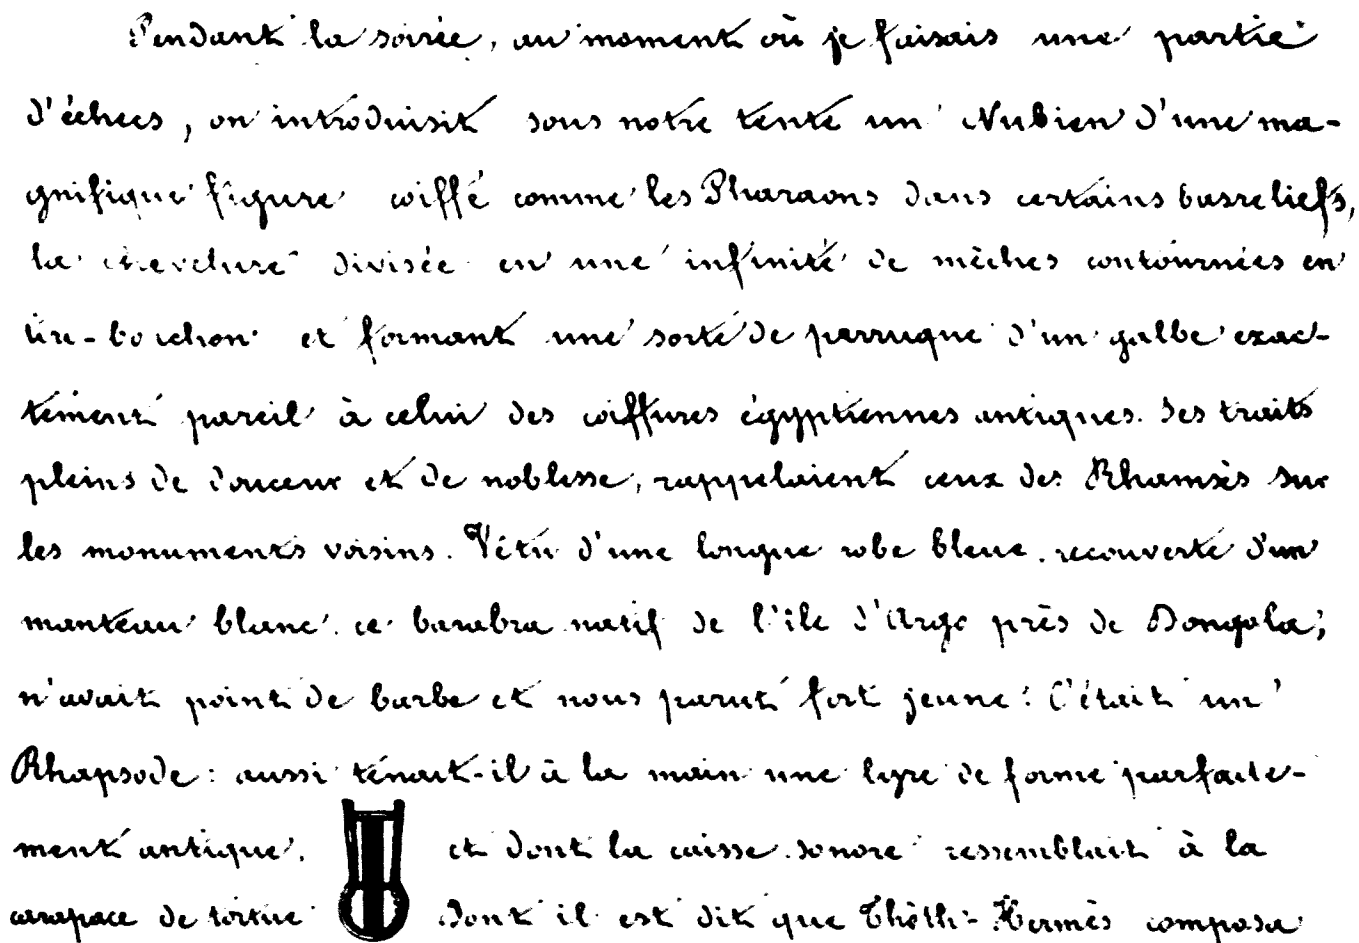 Pendant la soirée, au moment où je faisais une partie
d'échecs, on introduisit sous notre tente un Nubien d'une ma-
gnifique figure coiffé comme les Pharaons dans certains basreliefs,
la chevelure divisée en une infinité de mèches contournées en
tire-bouchon et formant une sorte de perruque d'un galbe exac-
tement pareil à celui des coiffures égyptiennes antiques. Ses traits
pleins de douceur et de noblesse, rappelaient ceux des Rhamsès sur
les monuments voisins. Vêtu d'une longue robe bleue, recouverte d'un
manteau blanc, ce barabra natif de l'île d'Argo près de Dongola,
n'avait point de barbe et nous parut fort jeune. C'était un
Rhapsode : aussi tenait-il à la main une lyre de forme parfaite-
ment antique, et dont la caisse sonore ressemblait à la
carapace de tortue dont il est dit que Thôth-Hermès composa